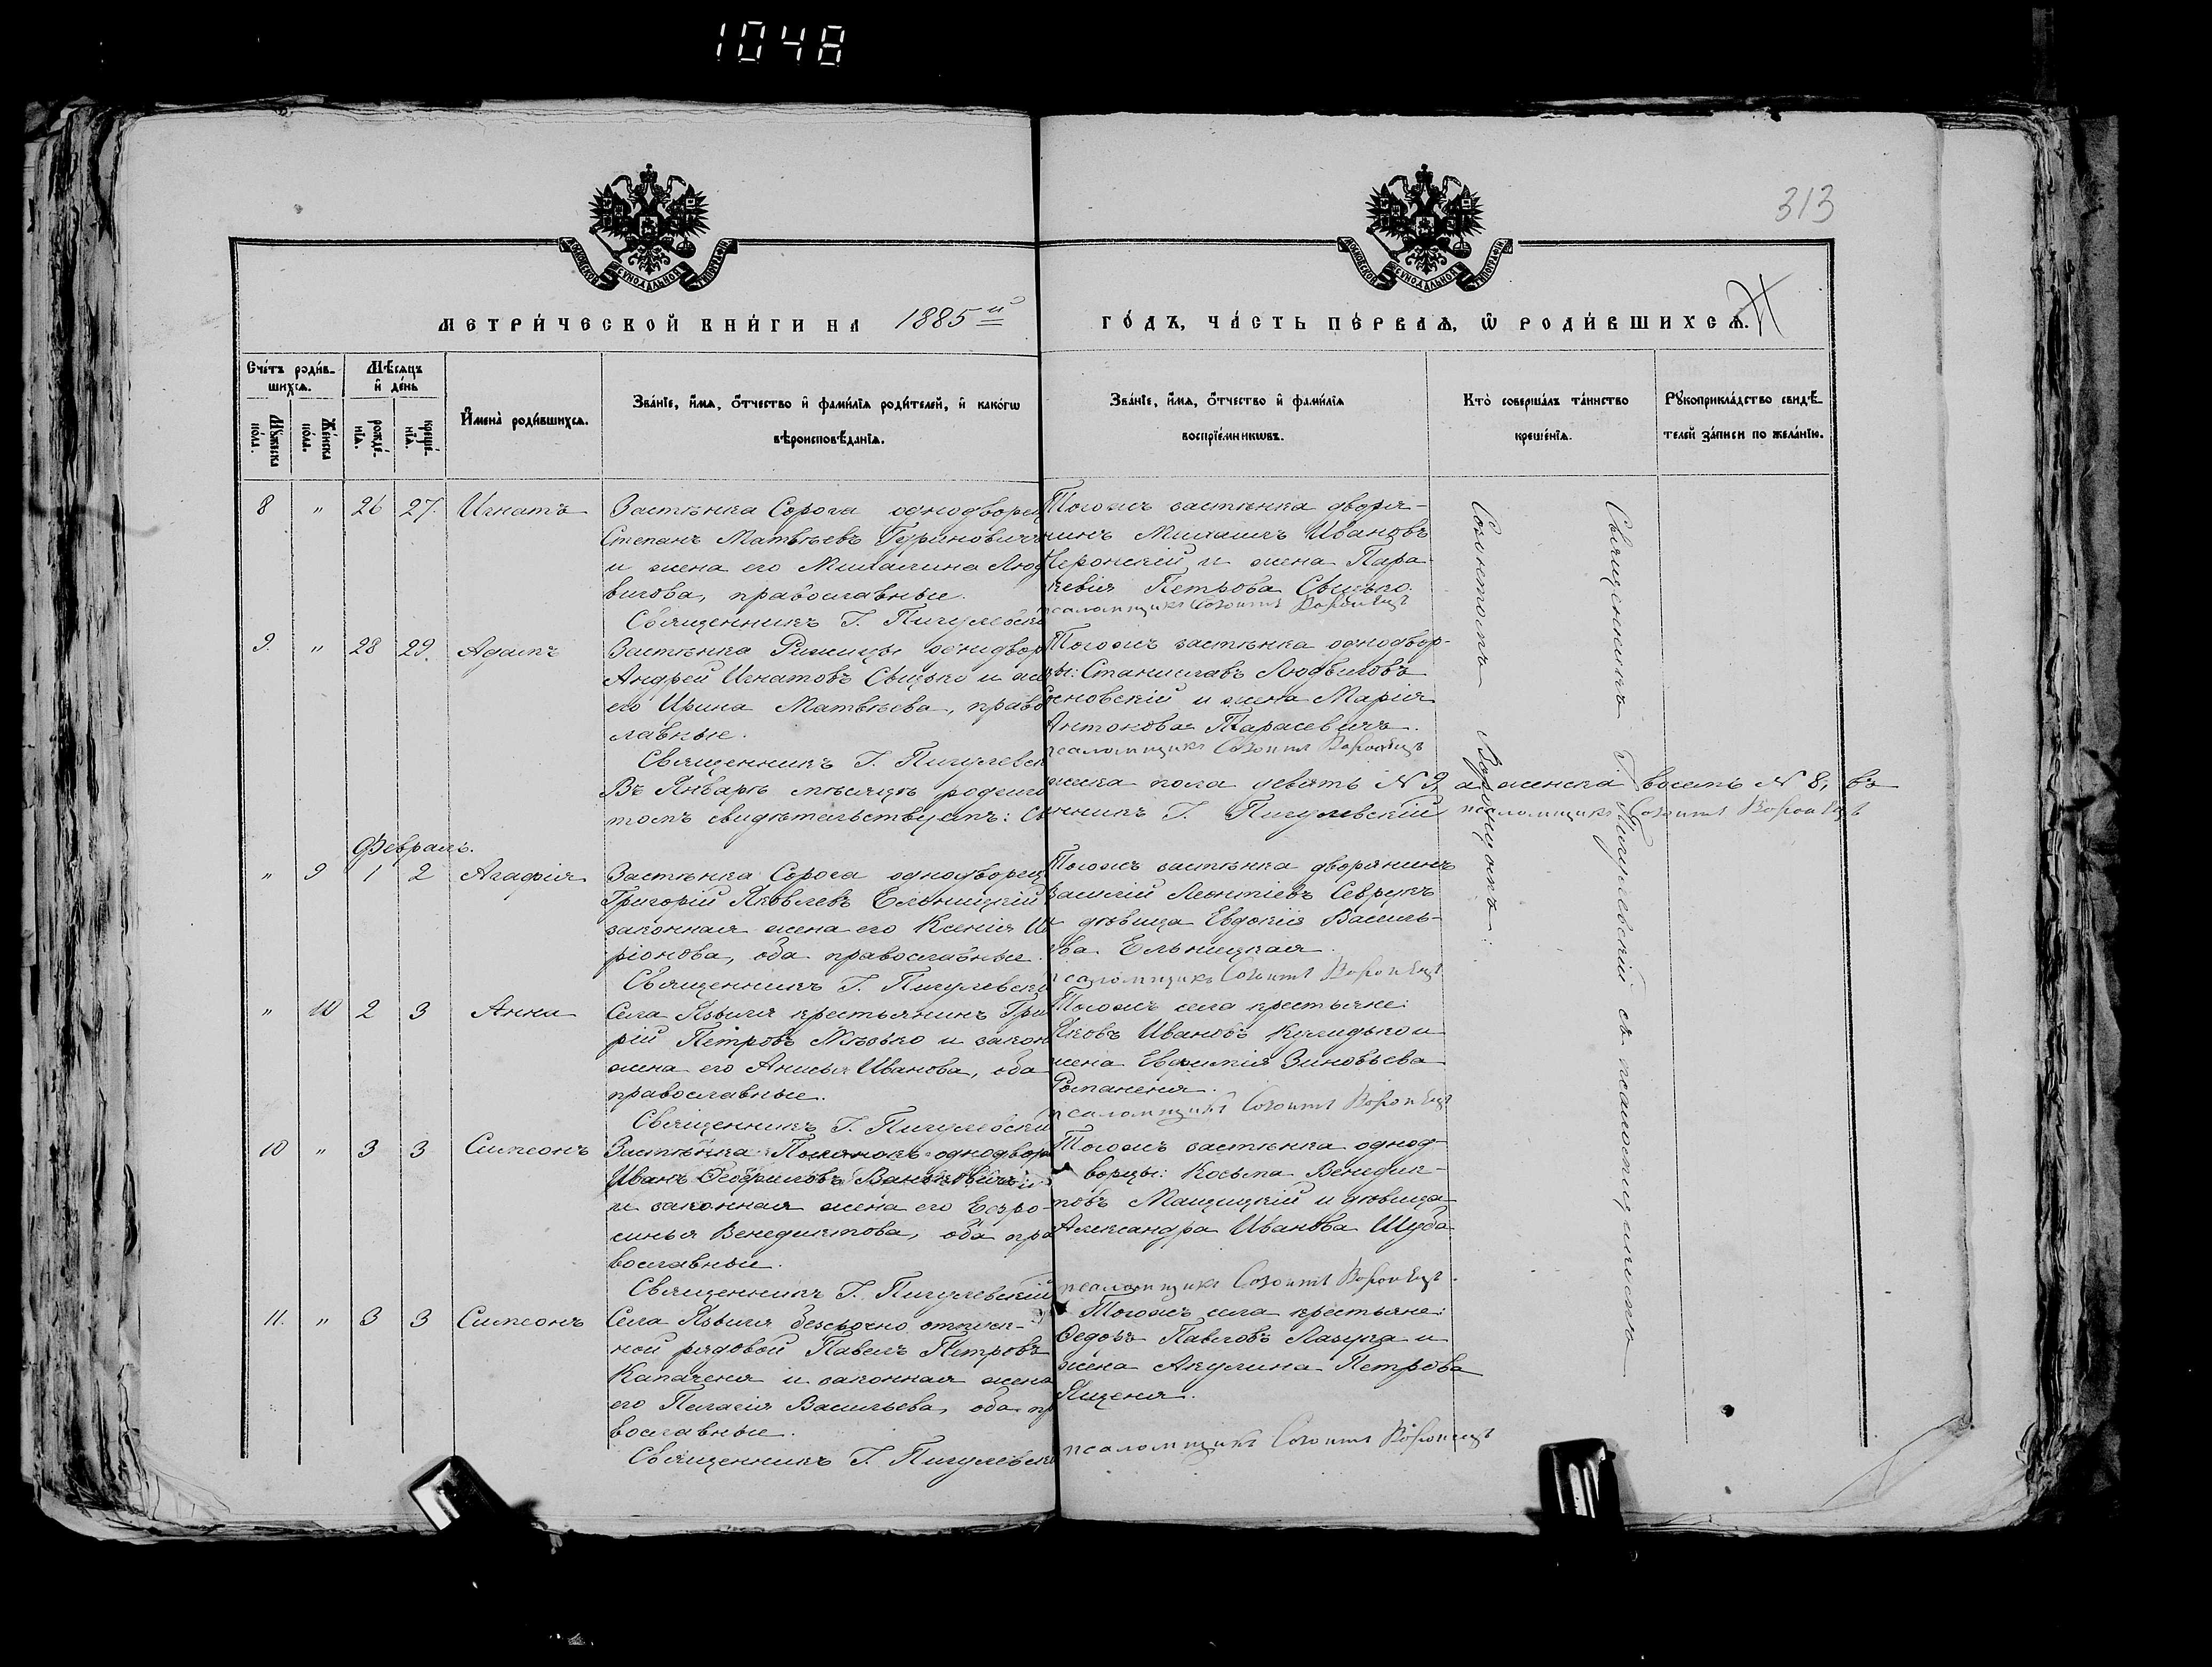 1048
313
МЕТРИ́ЧЕСКОЙ КНИ́ГИ НА 1885й
ГО́ДЪ, ЧА́СТЬ ПЕ́РВАѦ, Ѿ РОДИ́ВШИХСѦ.
Сче́тъ роди́в-
шихсѧ.
Мꙋ́жеска по́ла.
Же́нска по́ла.
Мѣ́сѧцъ
и҆ де́нь
рожде́-
нїѧ.
креще́-
нїѧ.
И҆мена̀ роди́вшихсѧ.
Зва́нїе, и҆́мѧ, ѻ҆́тчество и҆ фами́лїѧ роди́телей, и҆ како́гѡ
вѣроисповѣ́данїѧ.
Зва́нїе, и҆́мѧ, ѻ҆́тчество и҆ фами́лїѧ
воспрїе́мникѡвъ.
Кто̀ соверша́лъ та́инство
креще́нїѧ.
Рꙋкоприкла́дство свидѣ́-
телей за́писи по жела́нїю.
8 " 26 27. Игнатъ
Застѣнка Сорога однодворец
Степанъ Матѣевъ Гуриновичъ
и жена его Михалина Люд
вигова, православные.
Священникъ Г. Пигулевскі
Тогожъ застѣнка дворя-
нинъ Михаилъ Ивановъ
и жена Пара
кевія Петрова Свицько.
псаломщикъ Созонтъ Воронецъ
9. " 28 29. Адамъ
Застѣнка однодвор
Андрей Игнатовъ Свицько и же
его Ирина Матвѣева, право
лавные.
Священникъ Г. Пигулевск
Тогожъ застѣнка однодвор-
цы: Станиславъ Людвиговъ
сновскій и жена Марія
Антонова Тарасевичъ.
псаломщикъ Созонтъ Воронецъ
Въ Январѣ мѣсяцѣ родило
жеска пола девять N 9, а женска восемь N 8, въ
томъ свидѣтельствуемъ: Св
нникъ Г. Пигулевскій псаломщикъ Созонтъ Воронецъ
Февраль.
" 9 1 2 Агафія
Застѣнка Сорога однодворец
Григорій Яковлевъ Ельницкій
законная жена его Ксенія И
ріонова, оба православные.
Священникъ Г. Пигулевскі
Тогожъ застѣнка дворянинъ
Василій Леонтіевъ Севрукъ
и дѣвица Евдокія Василь-
ва Ельницкая.
псаломщикъ Созонтъ Воронецъ
" 10 2 3 Анна
Села Язвиля крестьянинъ Гри
рій Петровъ и закон
жена его Анисья Иванова, оба
православные.
Священникъ Г. Пигулевскі
Тогожъ села крестьяне:
Яковъ Ивановъ и
жена Евфимія Зиновьева
псаломщикъ Созонтъ Воронецъ
10 " 3 3 Симеонъ
Застѣнка однодвор
Иванъ Феофиловъ
и законная жена его Евфро-
синья Венедиктова, оба пра
вославные.
Священникъ Г. Пигулевскій
Тогожъ застѣнка однод-
ворцы: Косьма Венедик-
товъ и дѣвица
Александра Иванова Шуба
псаломщикъ Созонтъ Воронецъ.
11. " 3 3 Симеонъ
Села Язвиля безсрочно отпуск-
ной рядовой Павелъ Петровъ
Капаченя и законная жена
его Пелагія Васильева, оба пр
вославные.
Священникъ Г. Пигулевскі
Тогожъ села крестьяне:
Федоръ Павловъ Лазута и
жена Акулина Петрова
Ященя.
псаломщикъ Созонтъ Воронецъ
Священникъ Г. Пигулевскій съ псаломщикомъ
Созонтомъ Воронцомъ.